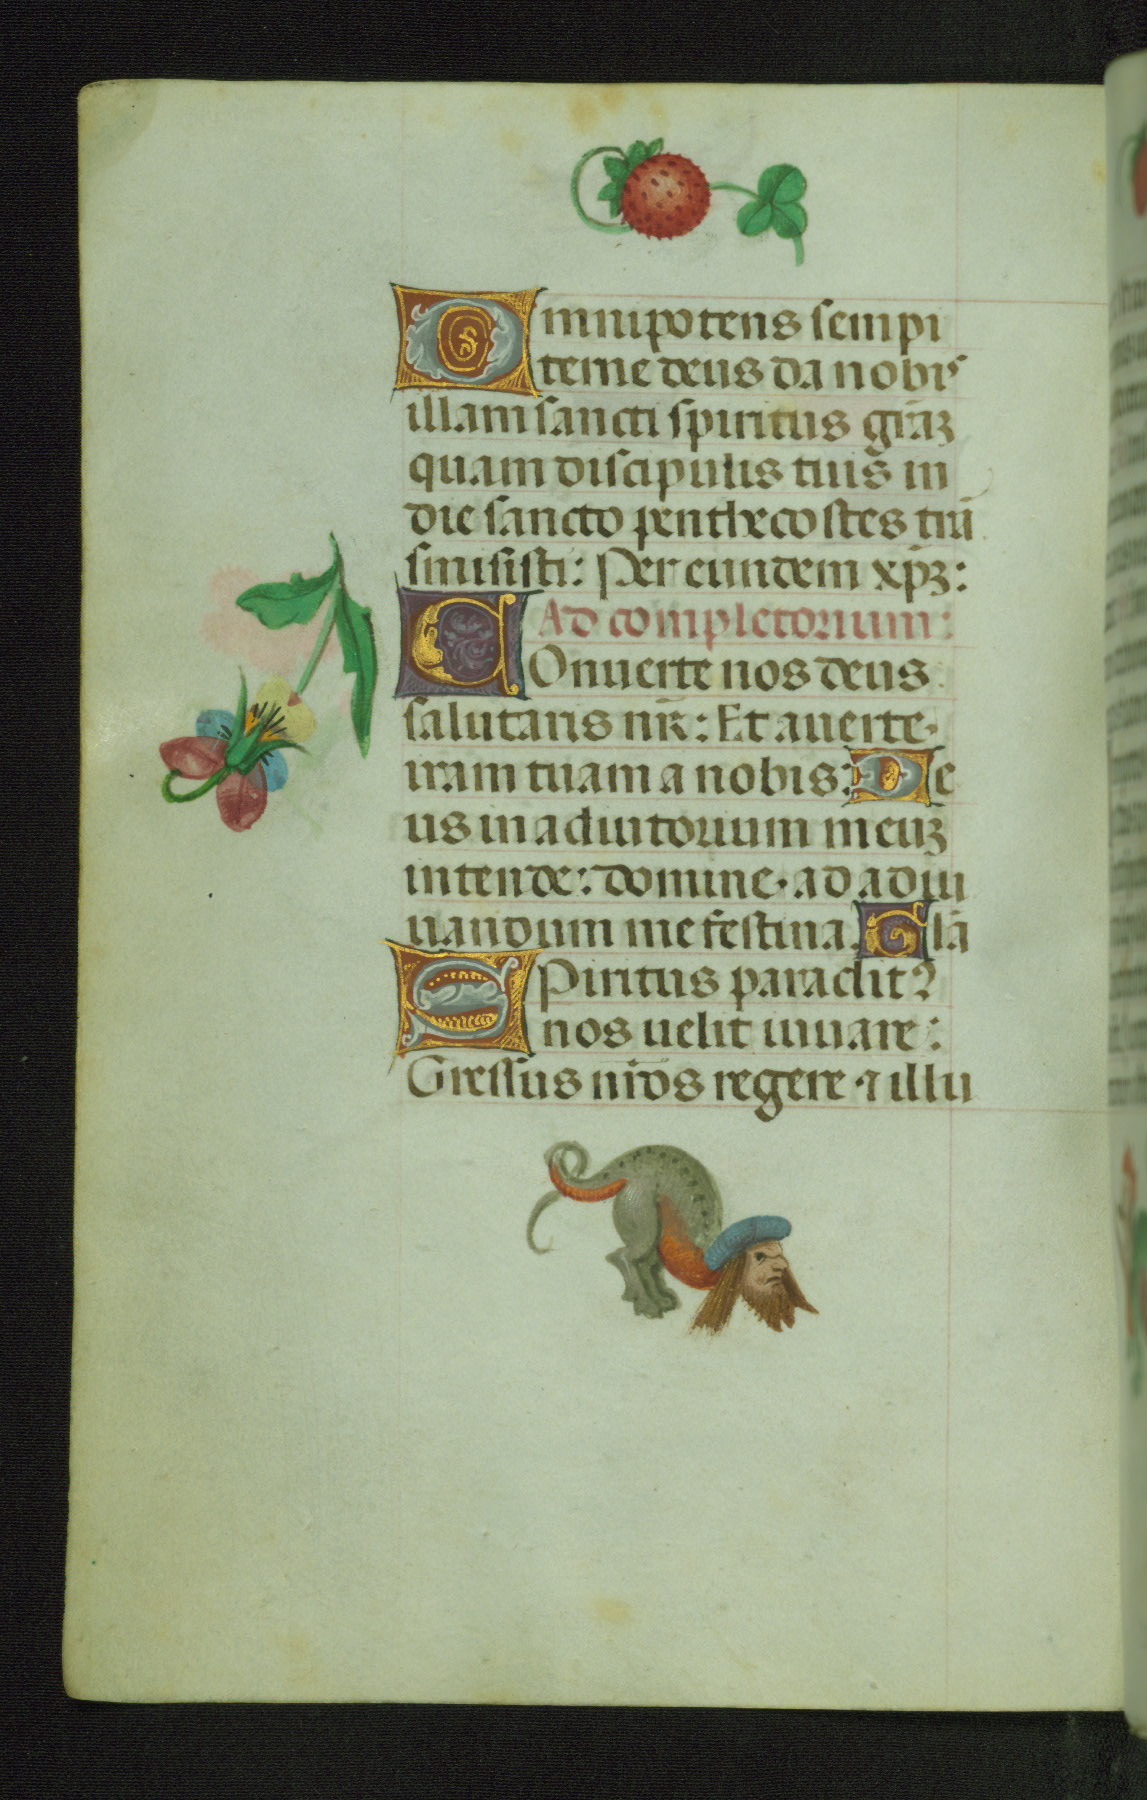 Omnipotens sempi
terne deus da nobis
illam sancti spiritus gr̄aꝫ
quam discipulis tuis in
die sancto penthecostes trā
smisisti: Per eundem xp̄ꝫ:
Ad completorium:
COnuerte nos deus
salutaris nr̄: Et auerte
iram tuam a nobis: De
us in adiutorium meuꝫ
intende: domine· ad adiu
uandum me festina. Glā
SPiritus paraclitꝰ
nos uelit iuuare:
Gressus nr̄os regere ⁊ illu